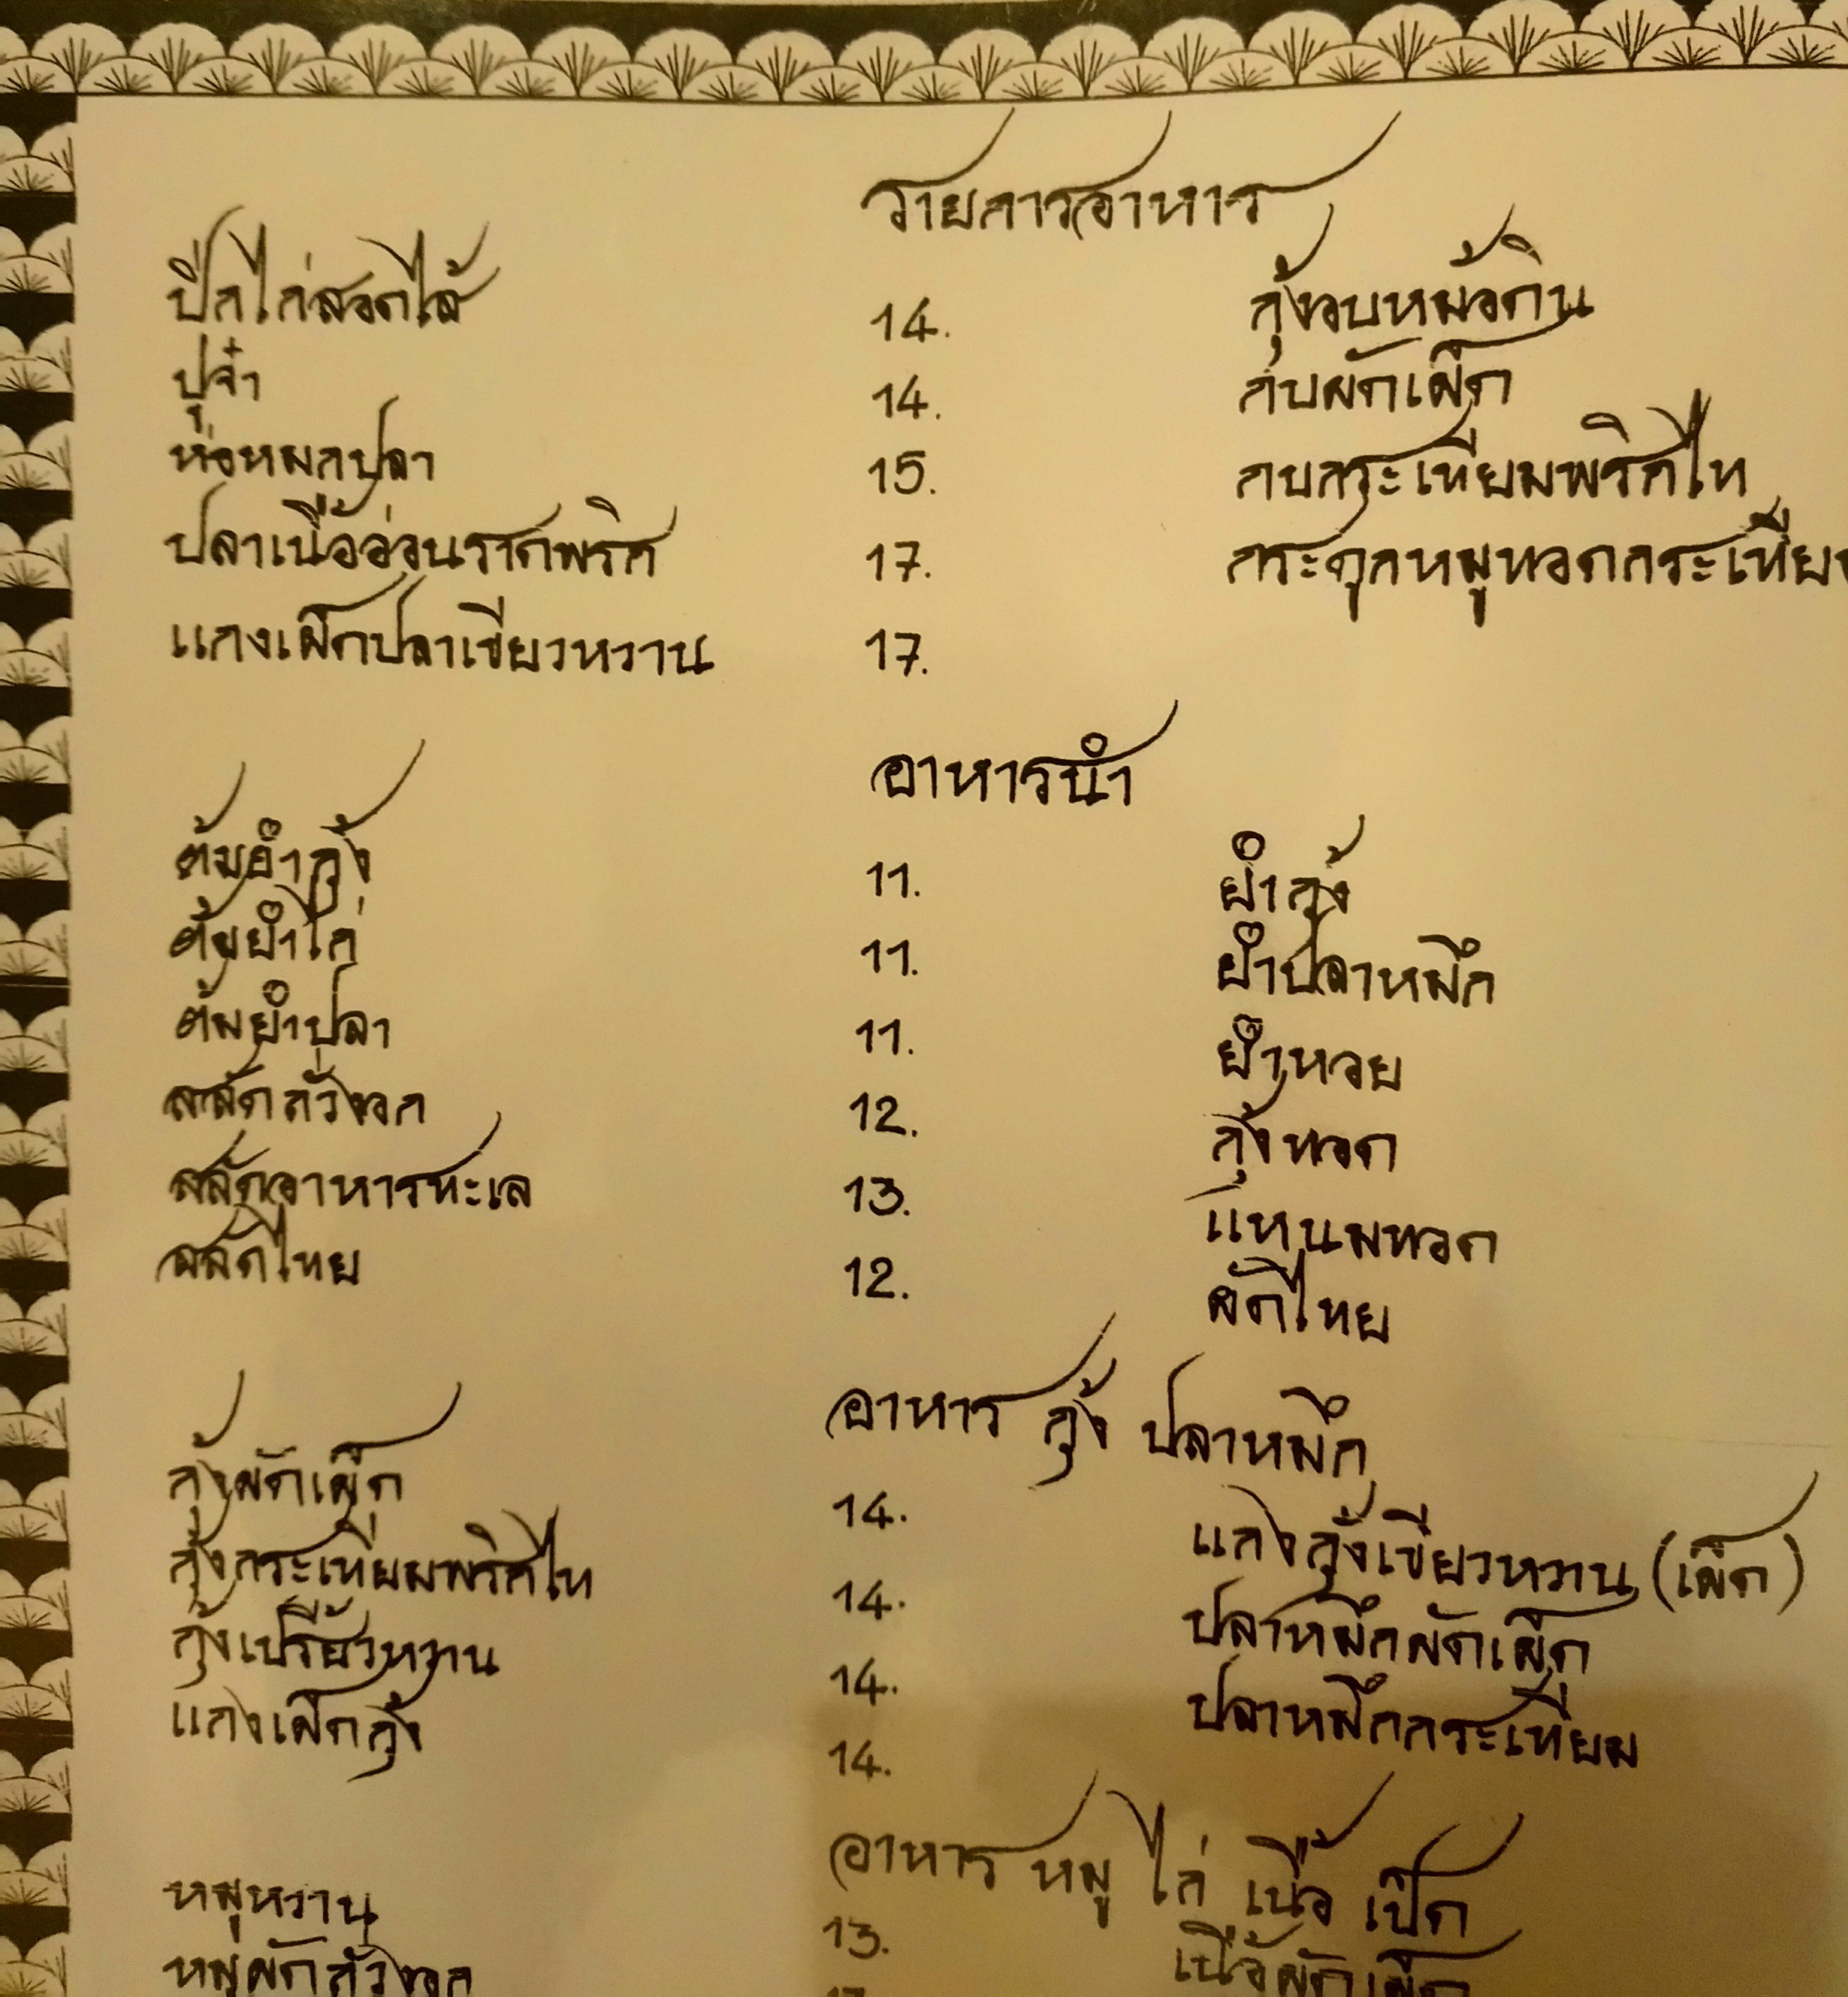 รายการอาหาร
ปีกไก่สอดไส้ 14. กุ้งอบหม้อดิน
ปูจ๋า 14. กบผัดเผ็ด
ห่อหมกปลา 15. กบกระเทียมพริกไท
ปลาเนื้ออ่อนราดพริก 17. กระดูกหมูทอดกระเทีย
แกงเผ็ดปลาเขียวหวาน 17.
อาหารนำ
ต้มยำกุ้ง 11. ยำกุ้ง
ต้มยำไก่ 11. ยำปลาหมึก
ต้มยำปลา 11. ยำหอย
สลัดถั่วงอก 12. กุ้งทอด
สลัดอาหารทะเล 13. แหนมทอด
สลัดไทย 12. ผัดไทย
อาหาร กุ้ง ปลาหมึก
กุ้งผัดเผ็ด 14. แกงกุ้งเขียวหวาน (เผ็ด)
กุ้งกระเทียมพริกไท 14. ปลาหมึกผัดเผ็ด
กุ้งเปรี้ยวหวาน 14. ปลาหมึกกระเทียม
แกงเผ็ดกุ้ง 14.
อาหาร หมู ไก่ เนื้อ เป็ด
หมูหวาน 13. เนื้อผัดเผ็ด
หมูผัดถั่วงอก